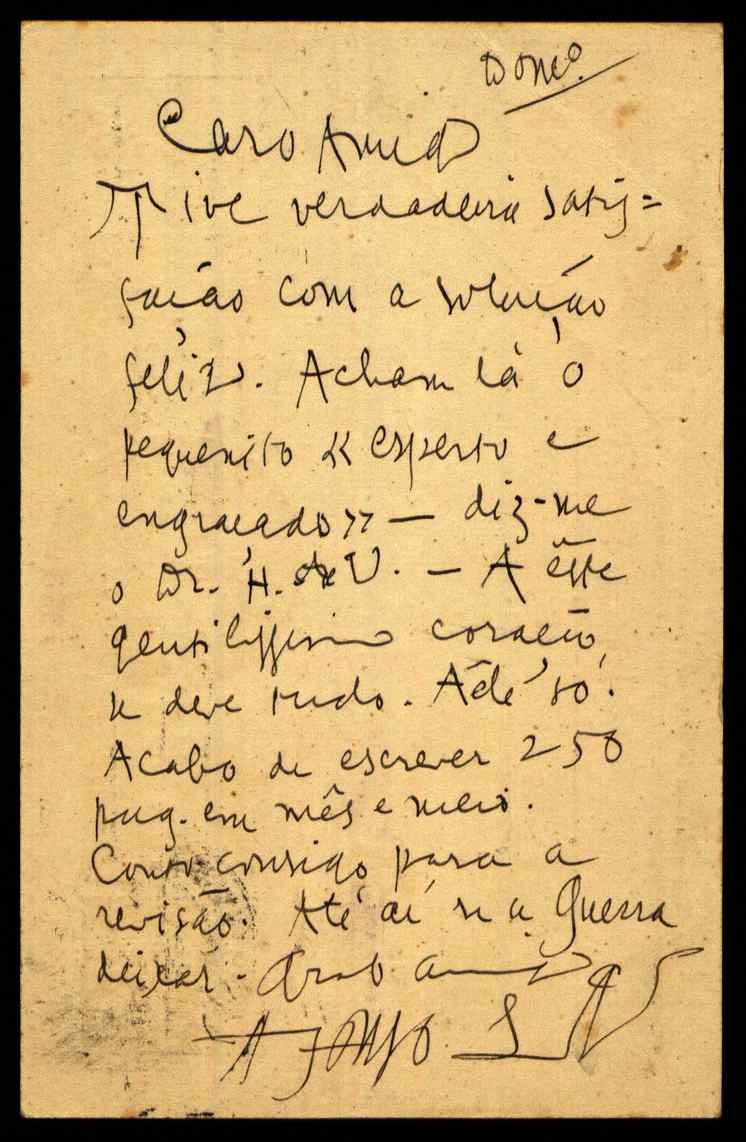 Domº.
Caro Amigo
Tive verdadeira satis=
fação com a solução
feliz. Acham lá o
pequenito « esperto e
engraçado » — diz-me
o Dr. H. de V. — A êsse
gentilissimo coração
se deve tudo. Até só.
Acabo de escrever 250
pag. em mês e meio.
Conto consigo para a
revisão. Até aí se a Guerra
deixar. Grato amigo